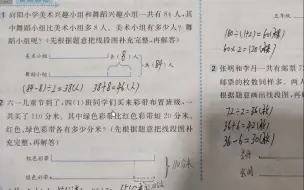 向阳小学美术兴趣小组和舞蹈兴趣小组一共有84人，其
中舞蹈小组比美术小组多8人，美术小组有多少人？舞蹈
小组呢？（先根据题意把线段图补充完整，再解答）
美术小组
舞蹈小组
8人
84人
(84-8)÷2=38(人) 38+8=46(人)
2 六一儿童节到了，四(1)班同学们买来彩带布置班级，一
共买了110分米，其中绿色彩带比红色彩带短20分米，
红色、绿色彩带各有多少分米？（先根据题意画线段图补
充完整，再解答）
红色彩带
绿色彩带
110分米
五年级
180÷(1+2)=60(枚)
60×2=120(枚)
2 张明和李月一共有邮票72
72÷2=36(枚)
36+6=42(枚)
36-6=30(枚)